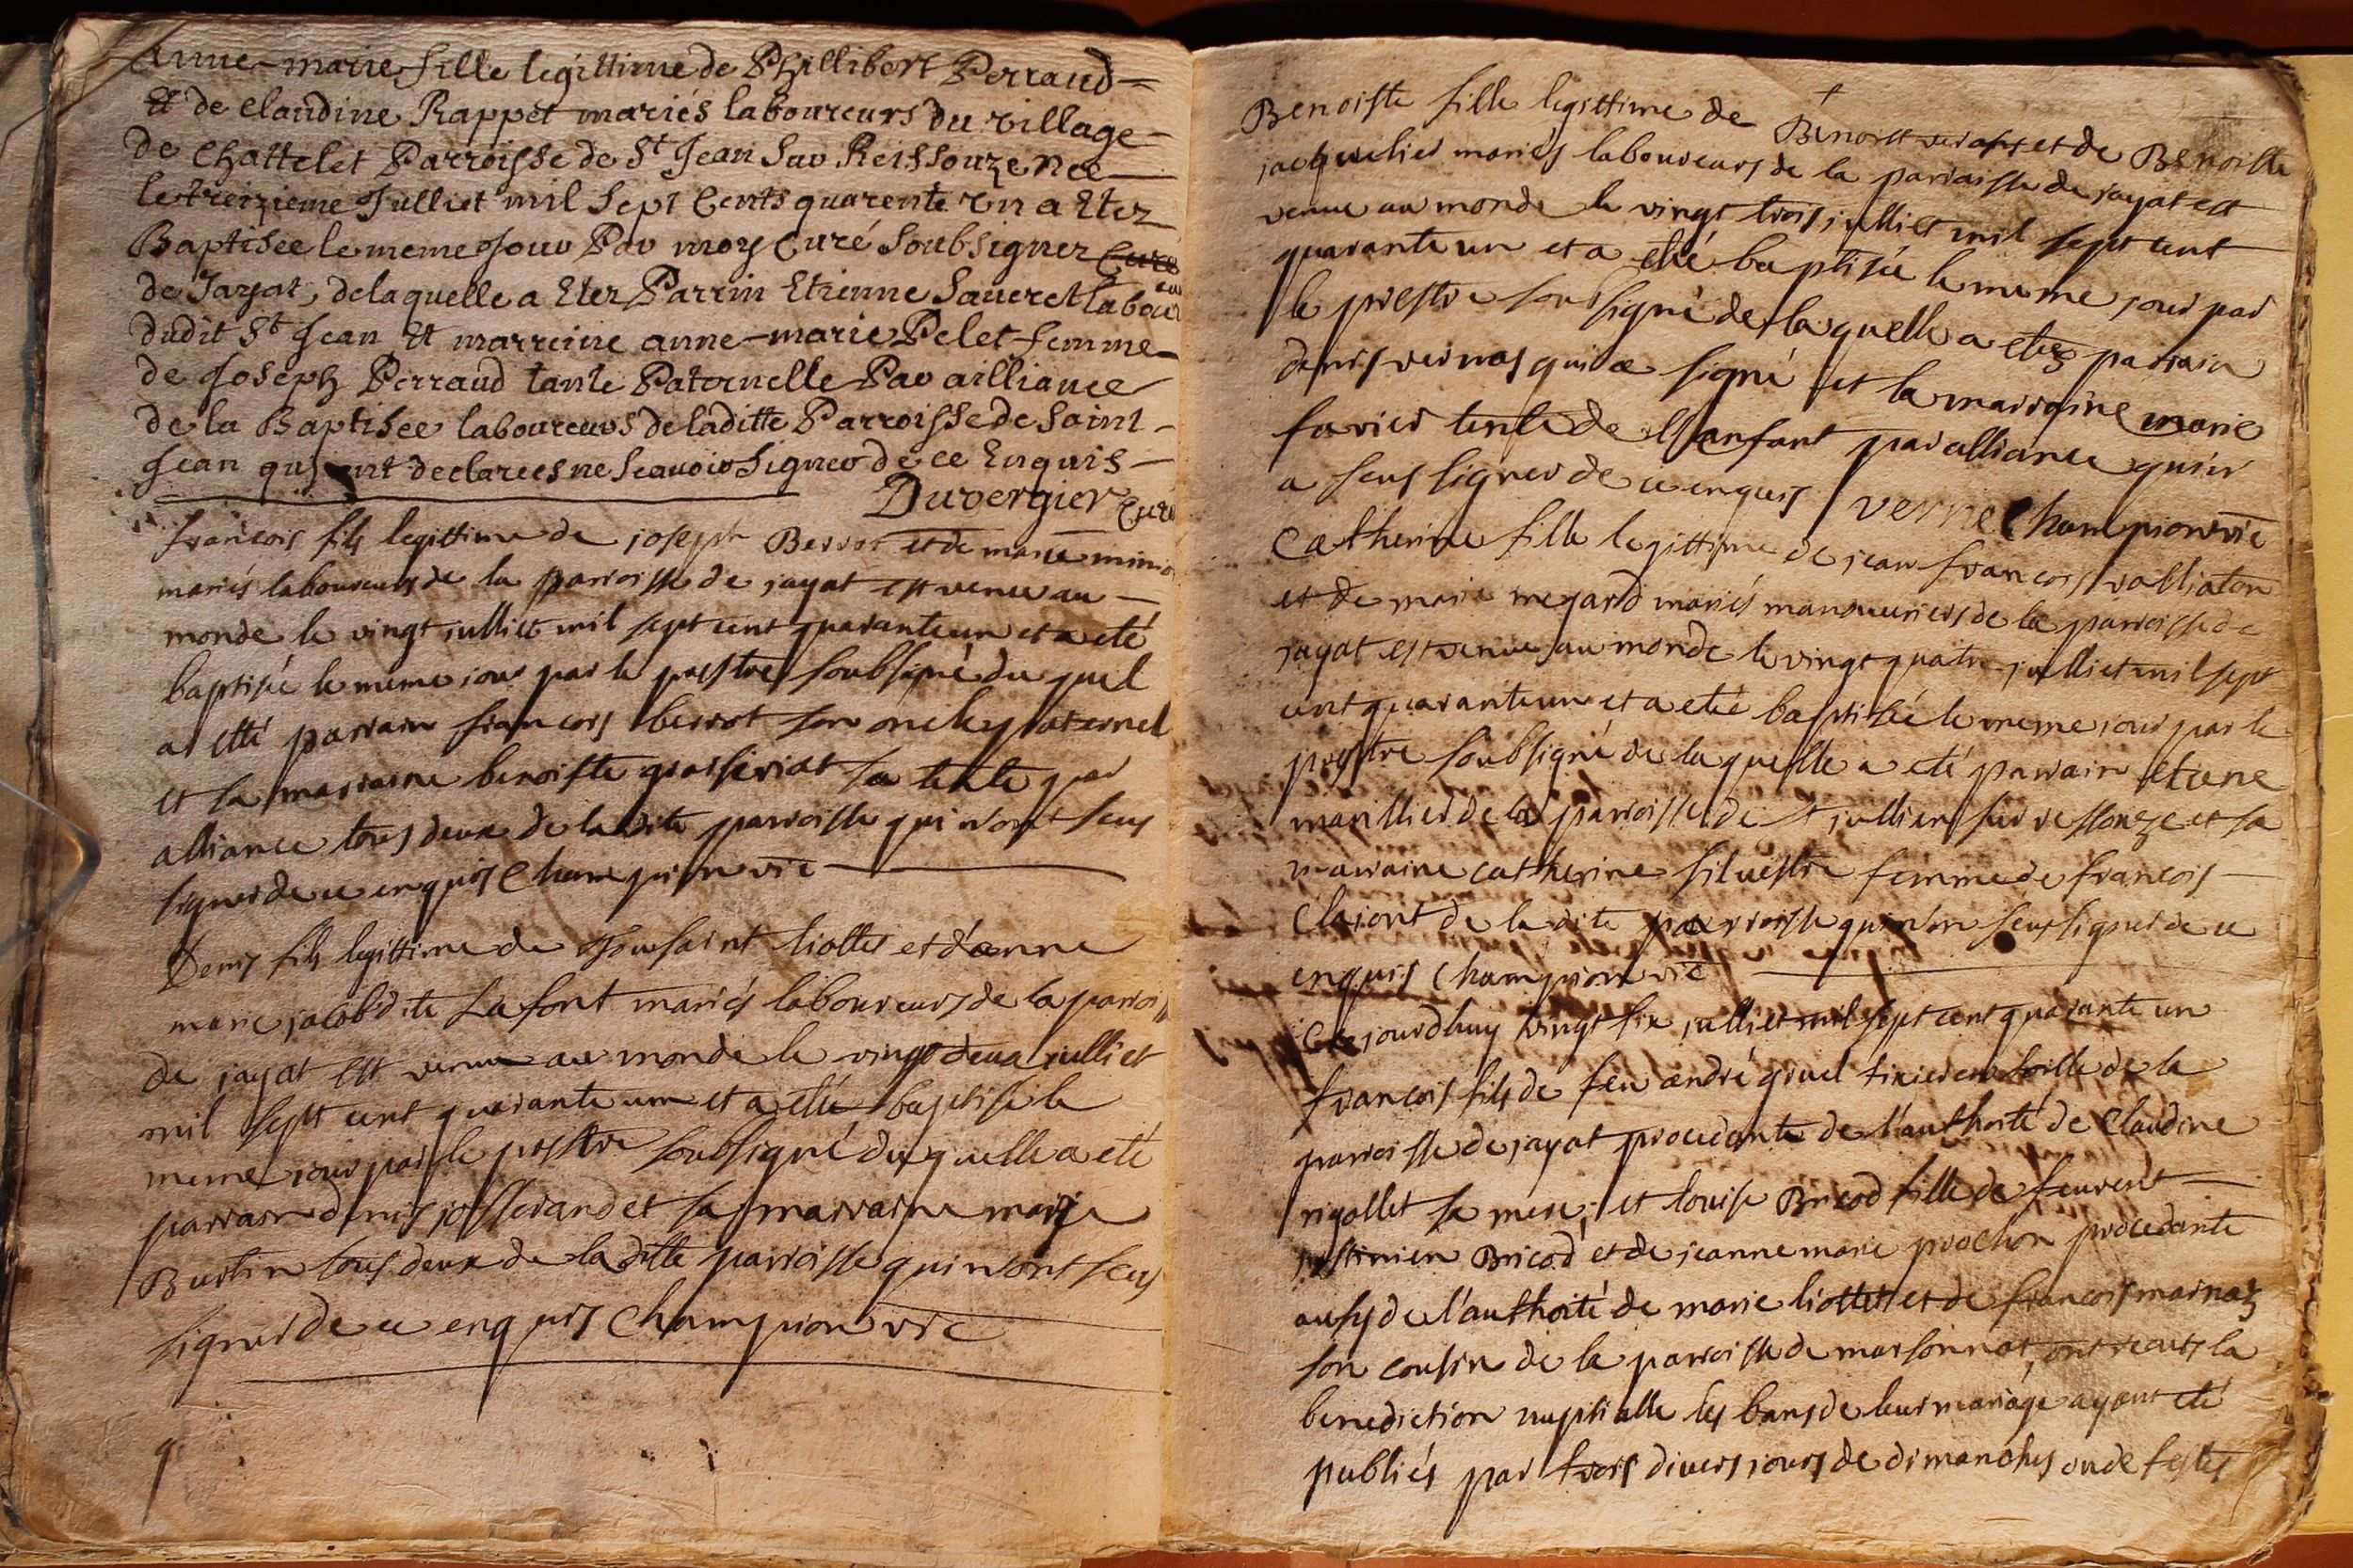 Anne-marie fille legittime de Phillibert Perraud
Et de Claudine Rappet mariés laboureurs du village
de Chattelet Parroisse de St Jean Sur Reissouze Née
le treizieme Julliet mil Sept Cents quarente un a Etez
Baptisée le meme Jour Par moy Curé Soubsigner Curé
de Jayat, de laquelle a Etez Parrin Etienne Saveret labour
dudit St Jean Et marreine anne-marie Pelet femme
de Joseph Perraud tante Paternelle Par ailliance
de la Baptisée laboureurs de laditte Parroisse de Saint
Jean qui ont declarees ne Scavoir Signer de ce Enquis
Duvergier Curé
francois fils legittime de joseph Berrot et de marie
mariés laboureurs de la parroisse de jayat est venu au
monde le vingt julliet mil sept cent quarante un et a eté
baptisé le meme jour par le prestre soubsigné du quel
a etté parrain francois berrot son oncle paternel
et sa marraine benoiste grosferiat sa tente par
alliance tous deux de la dite parroisse qui n'ont seus
signer de ce enquis Champion vic
Denis fils legittime de Tousaint liottes et d'anne
marie jacob dite Lafont mariés laboureurs de la parroiss
de jayat est venu au monde le vingt deux julliet
mil sept cent quarante un et a etté baptisé le
meme jour par le prestre soubsigné du quelle a eté
parrain denis josserand et sa marraine marie
Burtin tous deux de laditte parroisse qui n'ont seus
signer de ce enquis Champion vic
Benoiste fille legittime de Benoist et de Benoiste
jacquelier mariés laboureurs de la parroisse de jayat est
venue au monde le vingt trois julliet mil sept cent
quarante un et a etté baptisée le meme jour par
le prestre soussigné de laquelle a etez parrain
denis vernas qui a signé et la marraine marie
favier tente de l'enfant par alliance qui n'
a seus signer de ce enquis verne Champion vic
Catherine fille legittime de jean francois valliaton
et de marie megard mariés manouvriers de la parroisse de
jayat est venue au monde le vingt quatre julliet mil sept
cent quarante un et a eté baptisée le meme jour par le
prestre soubsigné de laquelle a eté parrain etiene
marillier de la parroisse de St jullien sur ressouze et sa
marraine catherine silvestre femme de francois
Clajont de la dite parroisse qui n'on seus signer de ce
enquis Champion vic
Ce jourdhuy vingt six julliet mil sept cent quarante un
francois fils de feu andré gruel tixier en toille de la
parroisse de jayat procedante de l'authorité de Claudine
rigollet sa mere; et louise Bricod fille de feu
justinien Bricod et de jeanne marie prochon procedante
ausy de l'authorité de marie liottes et de francois marnaz
son cousin de la parroisse de marsonnat, ont receus la
benediction nuptialle les bans de leur mariage ayant eté
publiés par trois divers jours de dimanches ou de festes